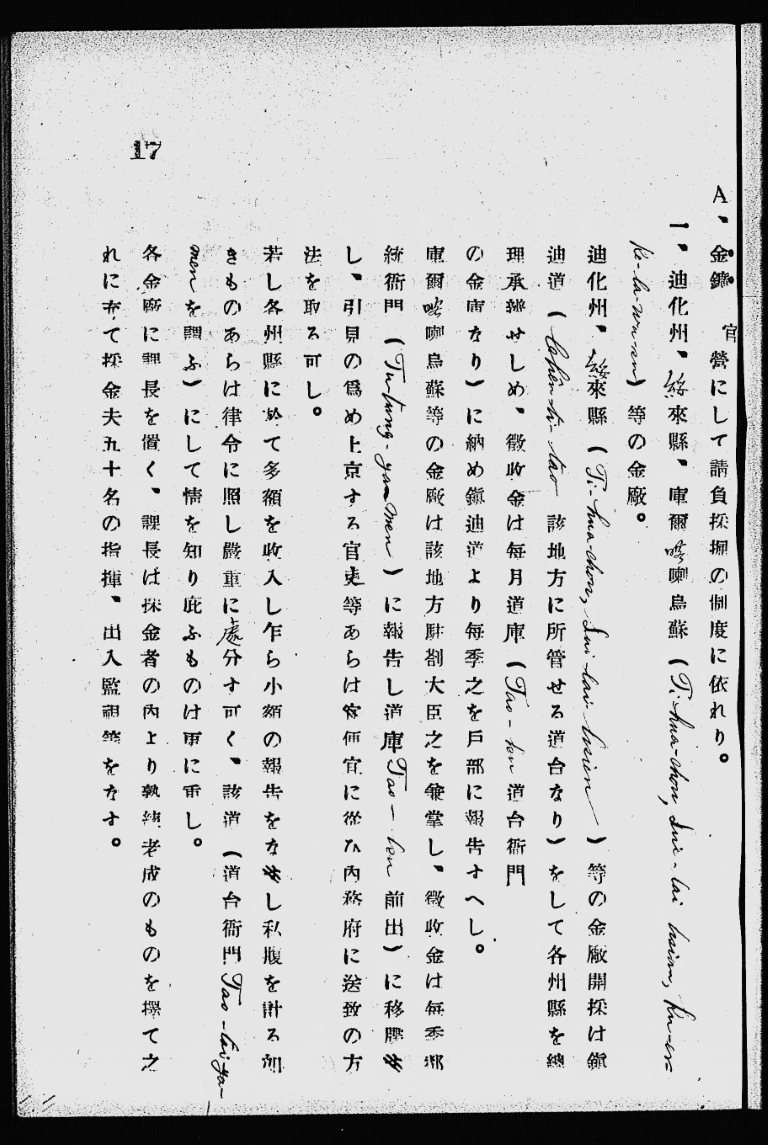 17
A、金鑛 官營にして請負採掘の制度に依れり。
一、迪化州、綏來縣、庫爾喀喇烏蘇（Ti-hua-chou, Sui-lai hsien, Ku-er-
ke-la-wu-su）等の金廠。
迪化州、綏來縣（Ti-hua-chou, Sui-lai hsien）等の金廠開採は鎭
迪道（ 該地方に所管せる道台なり）をして各州縣を總
理承辦せしめ、徵收金は每月道庫（Tao-ku 道台衙門
の金庫なり）に納め鎭迪道より每季之を戶部に報告すへし。
庫爾喀喇烏蘇等の金廠は該地方駐剳大臣之を兼掌し、徵收金は每季都
統衙門（Tu-tung-yamen）に報告し道庫（Tao-ku 前出）に移牒
し、引見の爲め上京する官吏等あらは客便宜に從ひ內務府に送致の方
法を取る可し。
若し各州縣に於て多額を收入し乍ら小額の報告をなし私腹を計る如
きものあらは律令に照し嚴重に處分す可く、該道（道台衙門 Tao-tai-ya-
menを謂ふ）にして情を知り庇ふものは更に重し。
各金廠に課長を置く、課長は採金者の內より熟練老成のものを擇て之
れに充て採金夫五十名の指揮、出入監視等をなす。